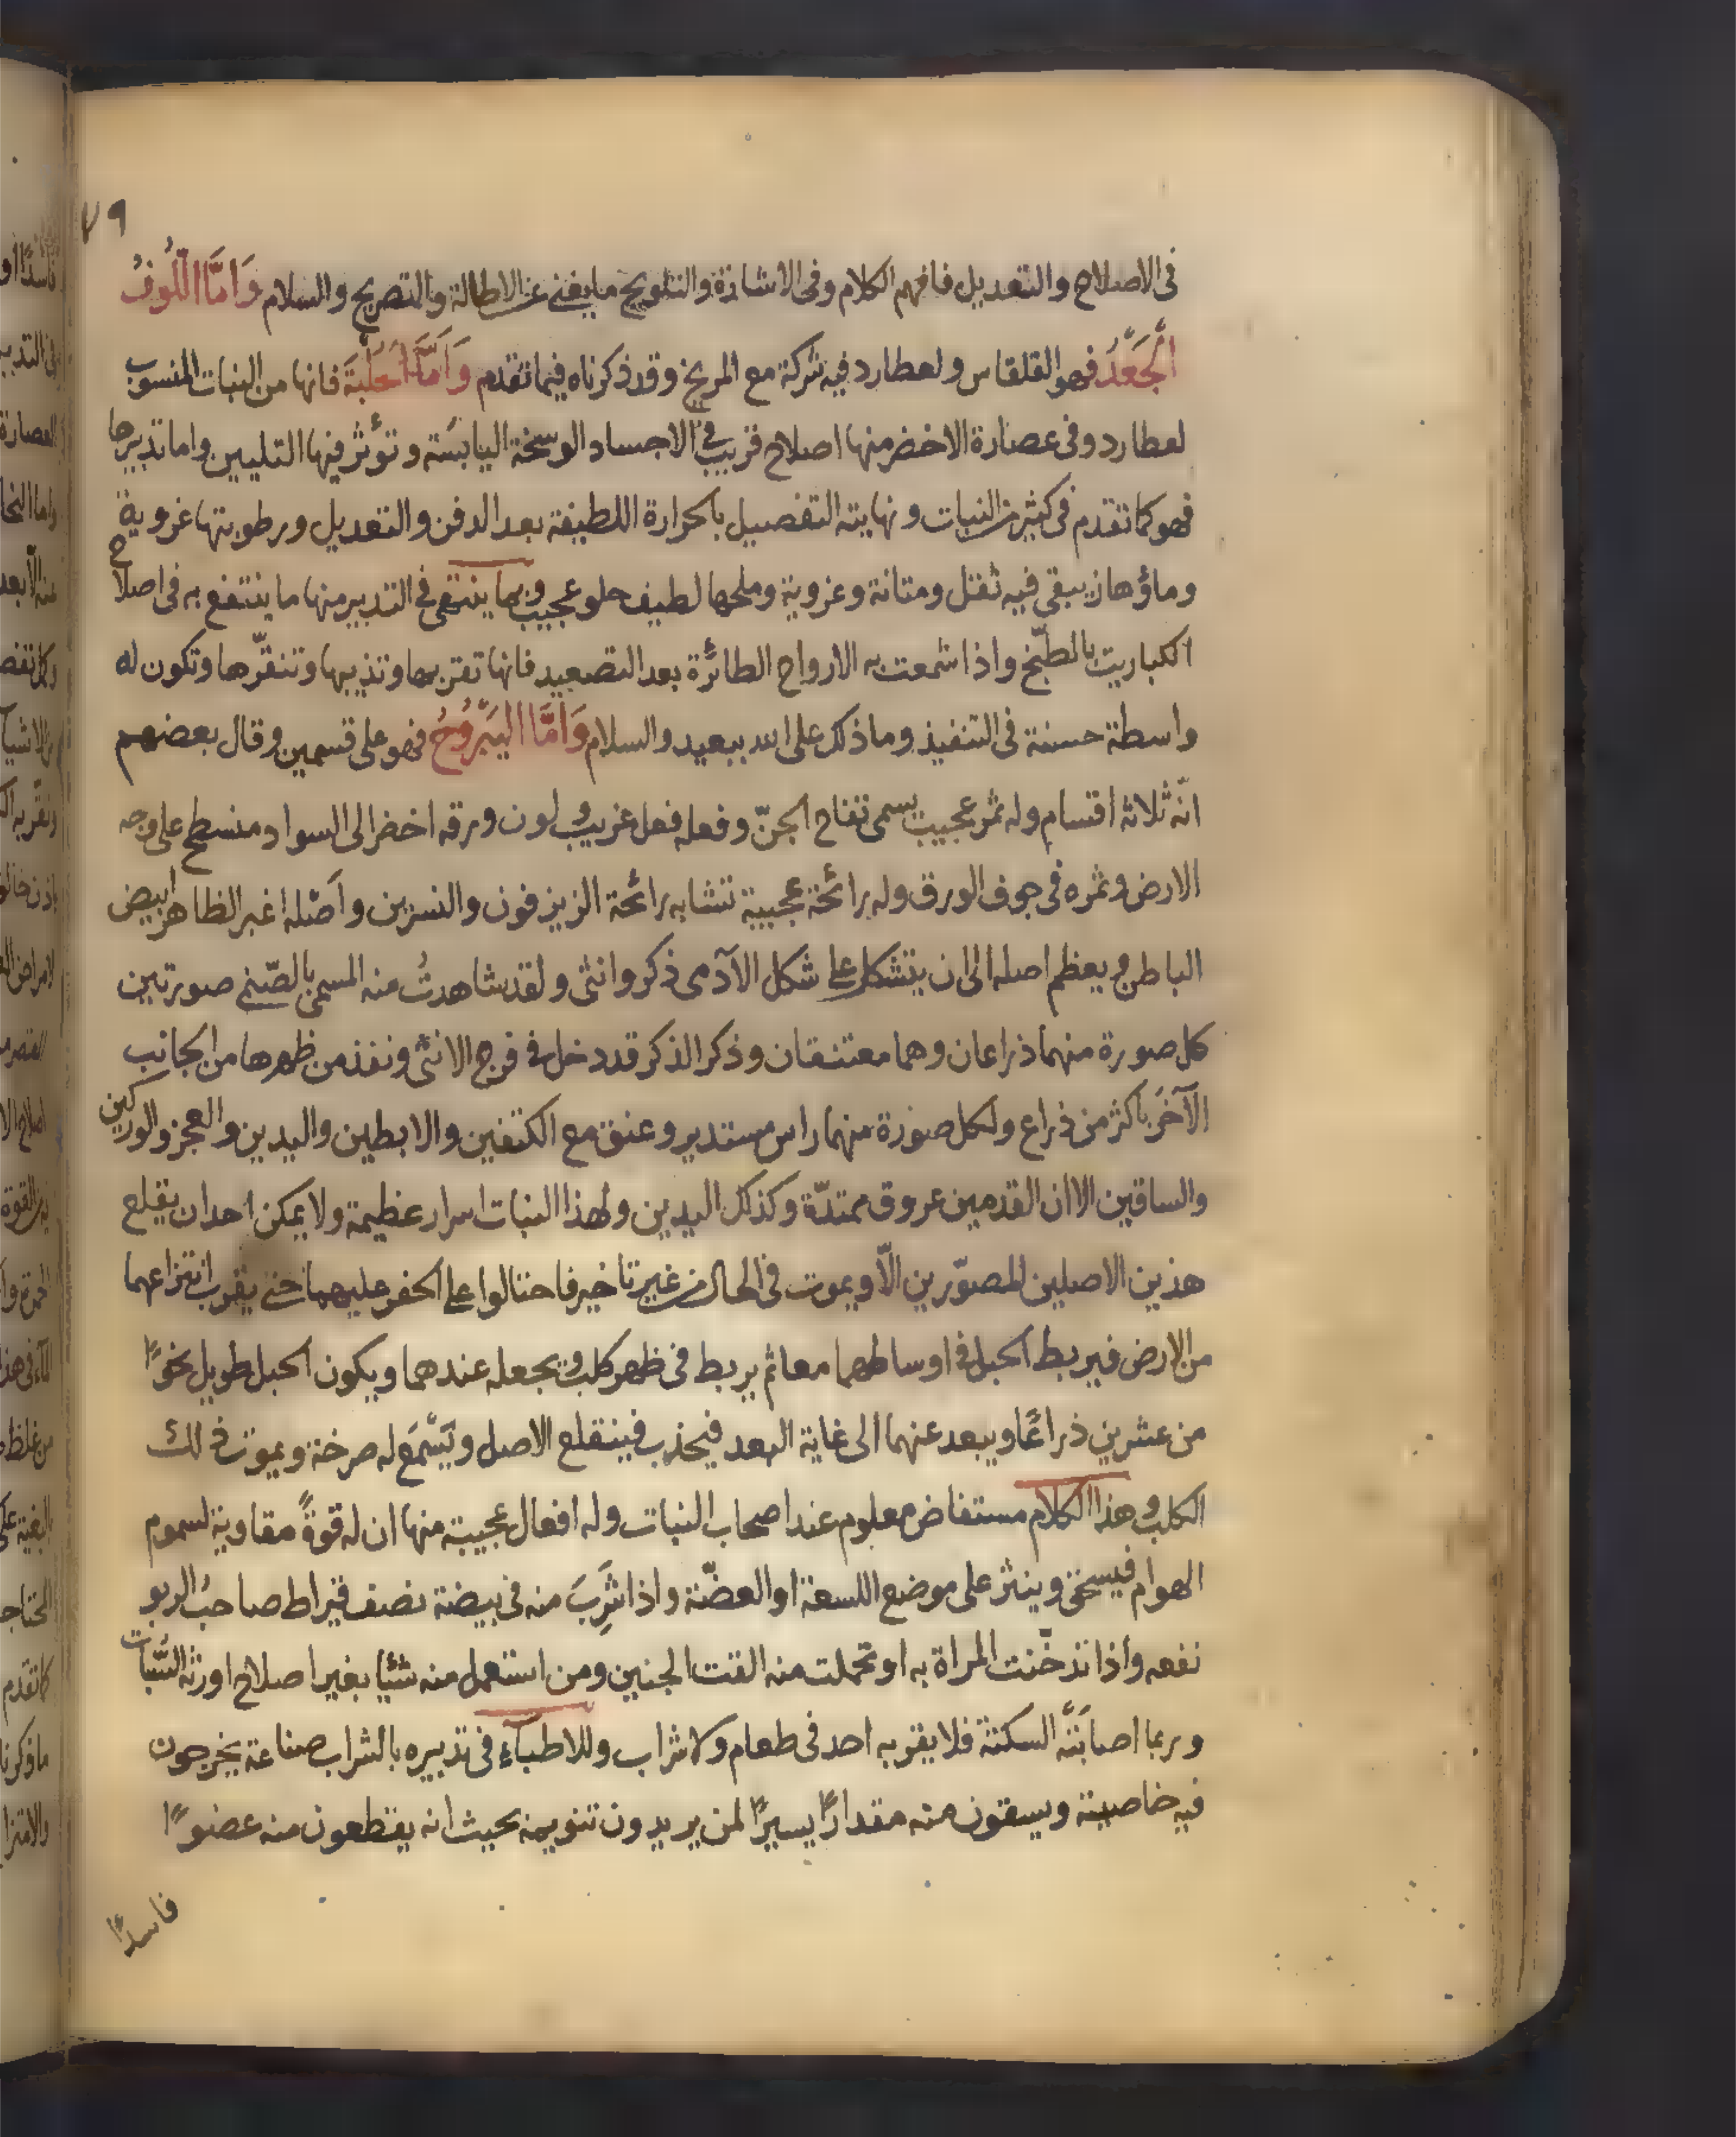 ٧٩
فى الاصلاح والتعديل فافهم الكلام وفى الاشارة والتلويح ما يغنى عن الاطالة والتصريح والسلام وَاَمَّا اللُّوفُ
الجَعْدُ فهو القلقاس ولعطارد فيه شركة مع المريخ وقد ذكرناه فيما تقدم وَاَمَّا الحُلْبَةَ فانها من النبات المنسوب
لعطارد وفى عصارة الاخضر منها اصلاح قريب فى الاجساد الوسخة اليابسَة وتؤثر فيها التليين واما تدبيرها
فهو كما تقدم فى كثير من النبات ونهايته التفصيل بالحرارة اللطيفة بعد الدفن والتعديل ورطوبتها غروية
وماؤها يبقى فيه ثقل ومتانة وغروية وملحها لطيف حلو عجيب وبما ينتقى فى التدبير منها ما ينتفع به فى اصلاح
الكباريت بالطبّخ واذا شمعت به الارواح الطائرة بعد التصعيد فانها تقربها وتذيبها وتنقّرها وتكون له
واسطة حسنة فى التنفيذ وما ذلك على الله ببعيد والسلام وَاَمَّا اليَبْرُوحُ فهو على قسمين وقال بعضهم
انّه ثلاثه اقسام وله ثمر عجيب يسمى تفاح الجنّ وفعله فعل غريب ولون ورقه اخضر الى السواد منسطح على وجه
الارض وثمره فى جوف الورق وله رائحة عجيبة تتشابه رائحة الزيزفون والنسرين واَصْله اغبر الظاهر ابيض
الباطن ويعظم اصله الى ان يتشكل على شكل الآدمى ذكر وانثى ولقد شاهدتُ منه المسمى بالصّنم صورتين
كل صورة منهما ذراعان وهما معتنقان وذكر الذكر قد دخل فى فرج الانثى ونفذ من ظهرها من الجانب
الآخَر باكثر من ذراع ولكل صورة منهما راس مستدير وعنق مع الكتفين والابطين واليدين والعجز والوركين
والساقين الا ان القدمين عروق ممتدّة وكذلك اليدين ولهذا النبات اسرار عظيمة ولا يمكن احدا ان يقلع
هذين الاصلين المصوّرين الّا ويموت فى الحال من غير تاخير فاحتالوا على الحفر عليهما حتى يقرب انتزاعهما
من الارض فيربط الحبل فى اوساطهما معا ثم يربط فى ظهر كلب ويجعله عندهما ويكون الحبل طويل نحوًا
من عشرين ذراعًا ويبعد عنهما الى غاية البعد فيجذب فينقلع الاصل ويَسْمَع له صرخة ويموت ذلك
الكلب وهذا الكلام مستفاض معلوم عند اصحاب النبات وله افعال عجيبة منها ان له قوةً مقاوية لسموم
الهوام فيسحق وينثر على موضع اللسعة او العضّة واذا شَرِبَ منه فى بيضة نصف قيراط صاحبُ الربو
نفعه واذا تدخّنت المراة به او تحملت منه القت الجنين ومن استعمل منه شئيا بغير اصلاح اورثه السُّبات
وربما اصابَتْهُ السكتة فلا يقربه احد فى طعام ولا شراب وللاطباءِ فى تدبيره بالشراب صناعة يخرجون
فيه خاصيته ويسقون منه مقدارًا يسيرًا لمن يريدون تنويمه بحيث انه يقطعون منه عضوًا
فاسدًا